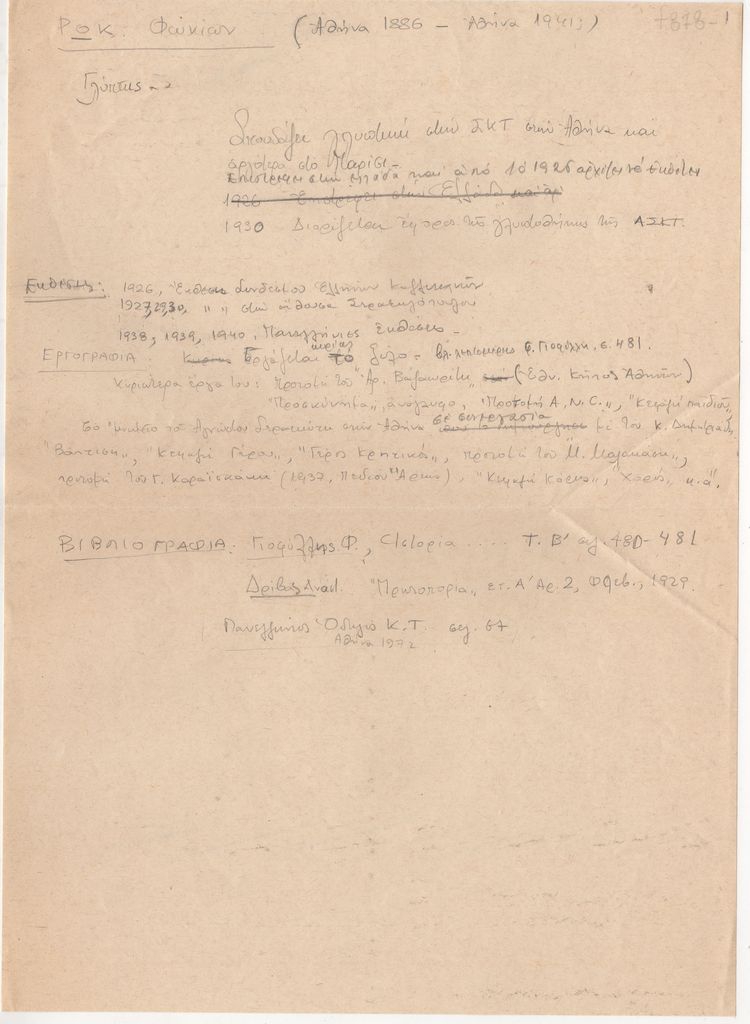 ΡΩΚ Φωκίων (Αθήνα 1886 – Αθήνα 1941;) 7878-1
Γλύπτης
Σπουδάζει γλυπτική στην ΣΚΤ στην Αθήνα και
αργότερα στο Παρίσι
Επιστρέφει στην Ελλάδα και από το 1926 αρχίζει να εκθέτει
1926 Επιστρέφει στην Ελλάδα και
1930 Διορίζεται έφορος της γλυπτοθήκης της ΑΣΚΤ.
Εκθέσεις: 1926, Έκθεση Συνδέσμου Ελλήνων Καλλιτεχνών
1927, 1930, " " στην αίθουσα Στρατηγόπουλου
1938, 1939, 1940, Πανελλήνιες Εκθέσεις –
ΕΡΓΟΓΡΑΦΙΑ. Κυρίως Εργάζεται κυρίως το ξύλο – βλ. Φ. Γιοφύλλη, σ. 481.
Κυριότερα έργα του: προτομή του "Αρ. Βαλαωρίτη" (Εθν. Κήπος Αθηνών)
"Προσκύνημα", ανάγλυφο, "Προτομή Α. Ν. С.", "Κεφαλή παιδιού",
το μνημείο του Αγνώστου Στρατιώτη στην Αθήνα σε συνεργασία με τον Κ. Δημητριάδη,
"Βάπτιση", "Κεφαλή Γέρου", "Γέρος Κρητικός", προτομή του "Μ. Μαλακάση",
προτομή του Γ. Καραϊσκάκη (1937, Πεδίον Άρεως), "Κεφαλή Κόρης", "Χορός", κ.ά.
ΒΙΒΛΙΟΓΡΑΦΙΑ: Γιοφύλλης Φ., Ιστορία ..... Τ. Β' σελ. 480-481
Δρίβας Αναστ. "Πρωτοπορία", ετ. Α' Αρ. 2, Φλεβ., 1929.
Πανελλήνιος Οδηγός Κ.Τ. σελ. 67
Αθήνα 1972